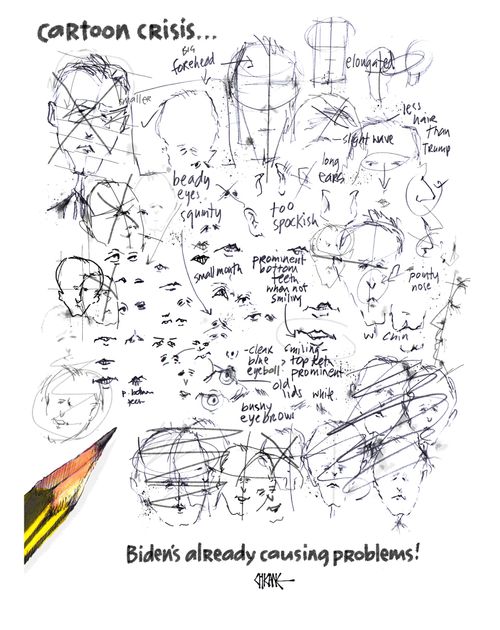 cartoon crisis...
BIG
forehead
elongated
smaller
less
hair
than
Trump
slight wave
long
ears
beady
eyes
squinty
too
spockish
small mouth
prominent
bottom
teeth
when not
smiling
pointy
nose
w chin
-clear
blue
eyeball
smiling-
top teeth
prominent
old
lids
white
bushy
eyebrow
Biden's already causing problems!